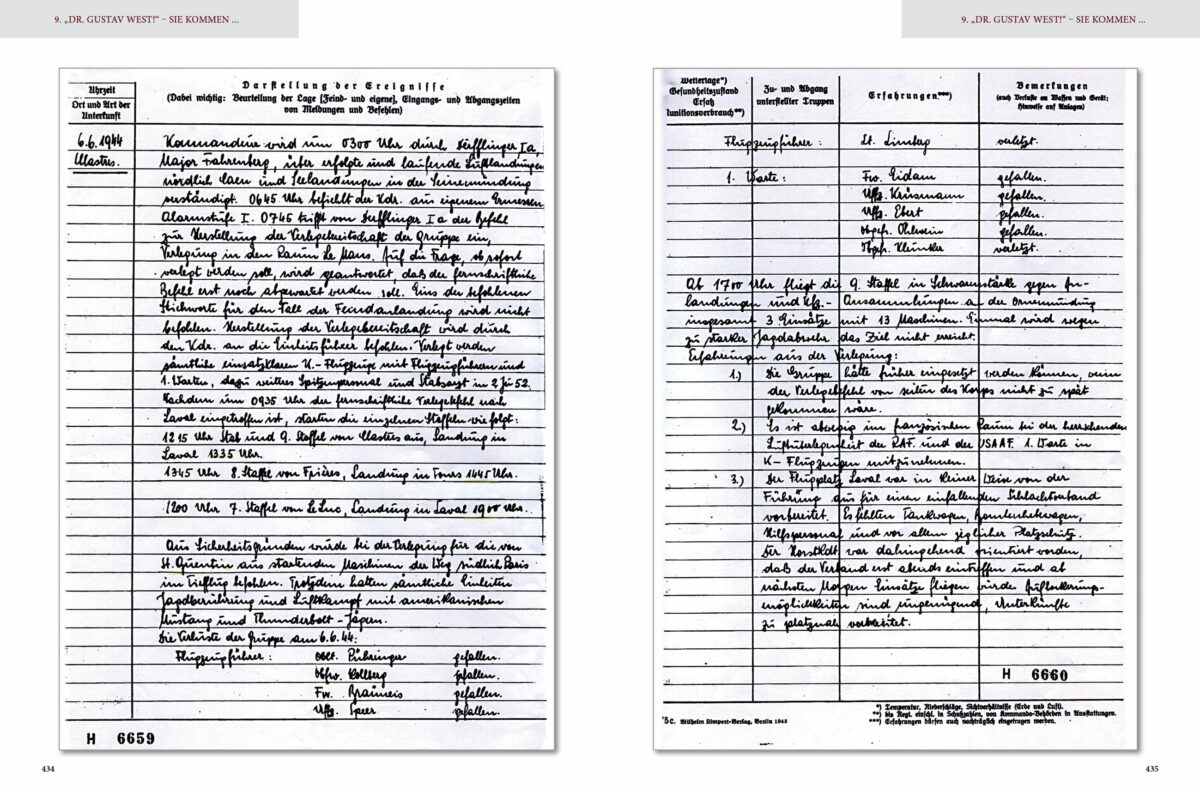 9. „DR. GUSTAV WEST!“ – SIE KOMMEN ...
Uhrzeit
Ort und Art der
Unterkunft
Darstellung der Ereignisse
(Dabei wichtig: Beurteilung der Lage [Feind- und eigene], Eingangs- und Abgangszeiten
von Meldungen und Befehlen)
6.6.1944
Mastres.
Kommandeur wird um 0300 Uhr durch Derfflinger Ia,
Major Fahrenberg, über erfolgte und laufende Luftlandungen
nördlich Caen und Seelandungen in der Seinemündung
verständigt. 0645 Uhr befiehlt der Kdr. aus eigenem Ermessen
Alarmstufe I. 0745 trifft von Derfflinger Ia der Befehl
zur Herstellung der Verlegebereitschaft der Gruppe ein,
Verlegung in den Raum Le Mans. Auf die Frage, ob sofort
verlegt werden soll, wird geantwortet, daß der fernschriftliche
Befehl erst noch abgewartet werden soll. Eins der befohlenen
Stichworte für den Fall der Feindanlandung wird nicht
befohlen. Herstellung der Verlegebereitschaft wird durch
den Kdr. an die Einheitsführer befohlen. Verlegt werden
sämtliche einsatzklaren K.-Flugzeuge mit Flugzeugführern und
1. Warten, dazu weiteres Spitzenpersonal und Stabsarzt in 2 Ju 52.
Nachdem um 0935 Uhr der fernschriftliche Verlegebefehl nach
Laval eingetroffen ist, starten die einzelnen Staffeln wie folgt:
1215 Uhr Stab und 9. Staffel von Mastres aus, Landung in
Laval 1335 Uhr.
1345 Uhr 8. Staffel von Frières, Landung in Tours 1445 Uhr.
1200 Uhr 7. Staffel von Le Luc, Landung in Laval 1900 Uhr.
Aus Sicherheitsgründen wurde bei der Verlegung für die von
St. Quentin aus startenden Maschinen der Weg südlich Paris
im Tiefflug befohlen. Trotzdem hatten sämtliche Einheiten
Jagdberührung und Luftkampf mit amerikanischen
Mustang und Thunderbolt-Jägern.
Die Verluste der Gruppe am 6.6.44:
Flugzeugführer: Oblt. Pühringer gefallen.
Obfw. Kolberg gefallen.
Fw. gefallen.
Uffz. gefallen.
H 6659
434
9. „DR. GUSTAV WEST!“ – SIE KOMMEN ...
Wetterlage*)
Gesundheitszustand
Ersatz
unitionsverbrauch**)
Zu- und Abgang
unterstellter Truppen
Erfahrungen***)
Bemerkungen
(auch Verluste an Waffen und Gerät;
Hinweise auf Anlagen)
Flugzeugführer: Lt. Limberg verletzt.
1. Warte: Fw. Eidam gefallen.
Uffz. Krüsmann gefallen.
Uffz. Ebert gefallen.
Obgefr. Ohlwein gefallen.
Obgefr. Klünker verletzt.
Ab 1700 Uhr fliegt die 9. Staffel in Schwarmstärke gegen An-
landungen und Kfz.-Ansammlungen an der Ornemündung
insgesamt 3 Einsätze mit 13 Maschinen. Einmal wird wegen
zu starker Jagdabwehr das Ziel nicht erreicht.
Erfahrungen aus der Verlegung:
1.) Die Gruppe hätte früher eingesetzt werden können, wenn
der Verlegebefehl von seiten des Korps nicht zu spät
gekommen wäre.
2.) Es ist abwegig im französischen Raum bei der herrschenden
Luftüberlegenheit der RAF. und der USAAF. 1. Warte in
K-Flugzeugen mitzunehmen.
3.) Der Flugplatz Laval war in keiner Weise von der
Führung aus für einen einfallenden Schlachtverband
vorbereitet. Es fehlten Tankwagen, Bombenhebewagen,
Hilfspersonal und vor allem jeglicher Platzschutz.
Der Horstkdt. war dahingehend orientiert worden,
daß der Verband erst abends eintreffen und ab
nächsten Morgen Einsätze fliegen würde. Auflockerungs-
möglichkeiten sind ungenügend, Unterkünfte
zu platznah vorbereitet.
H 6660
5c. Wilhelm Limpert-Verlag, Berlin 1943
*) Temperatur, Niederschläge, Sichtverhältnisse (Erde und Luft).
**) bis Regt. einschl. in Schußzahlen, von Kommando-Behörden in Ausstattungen.
***) Erfahrungen dürfen auch nachträglich eingetragen werden.
435